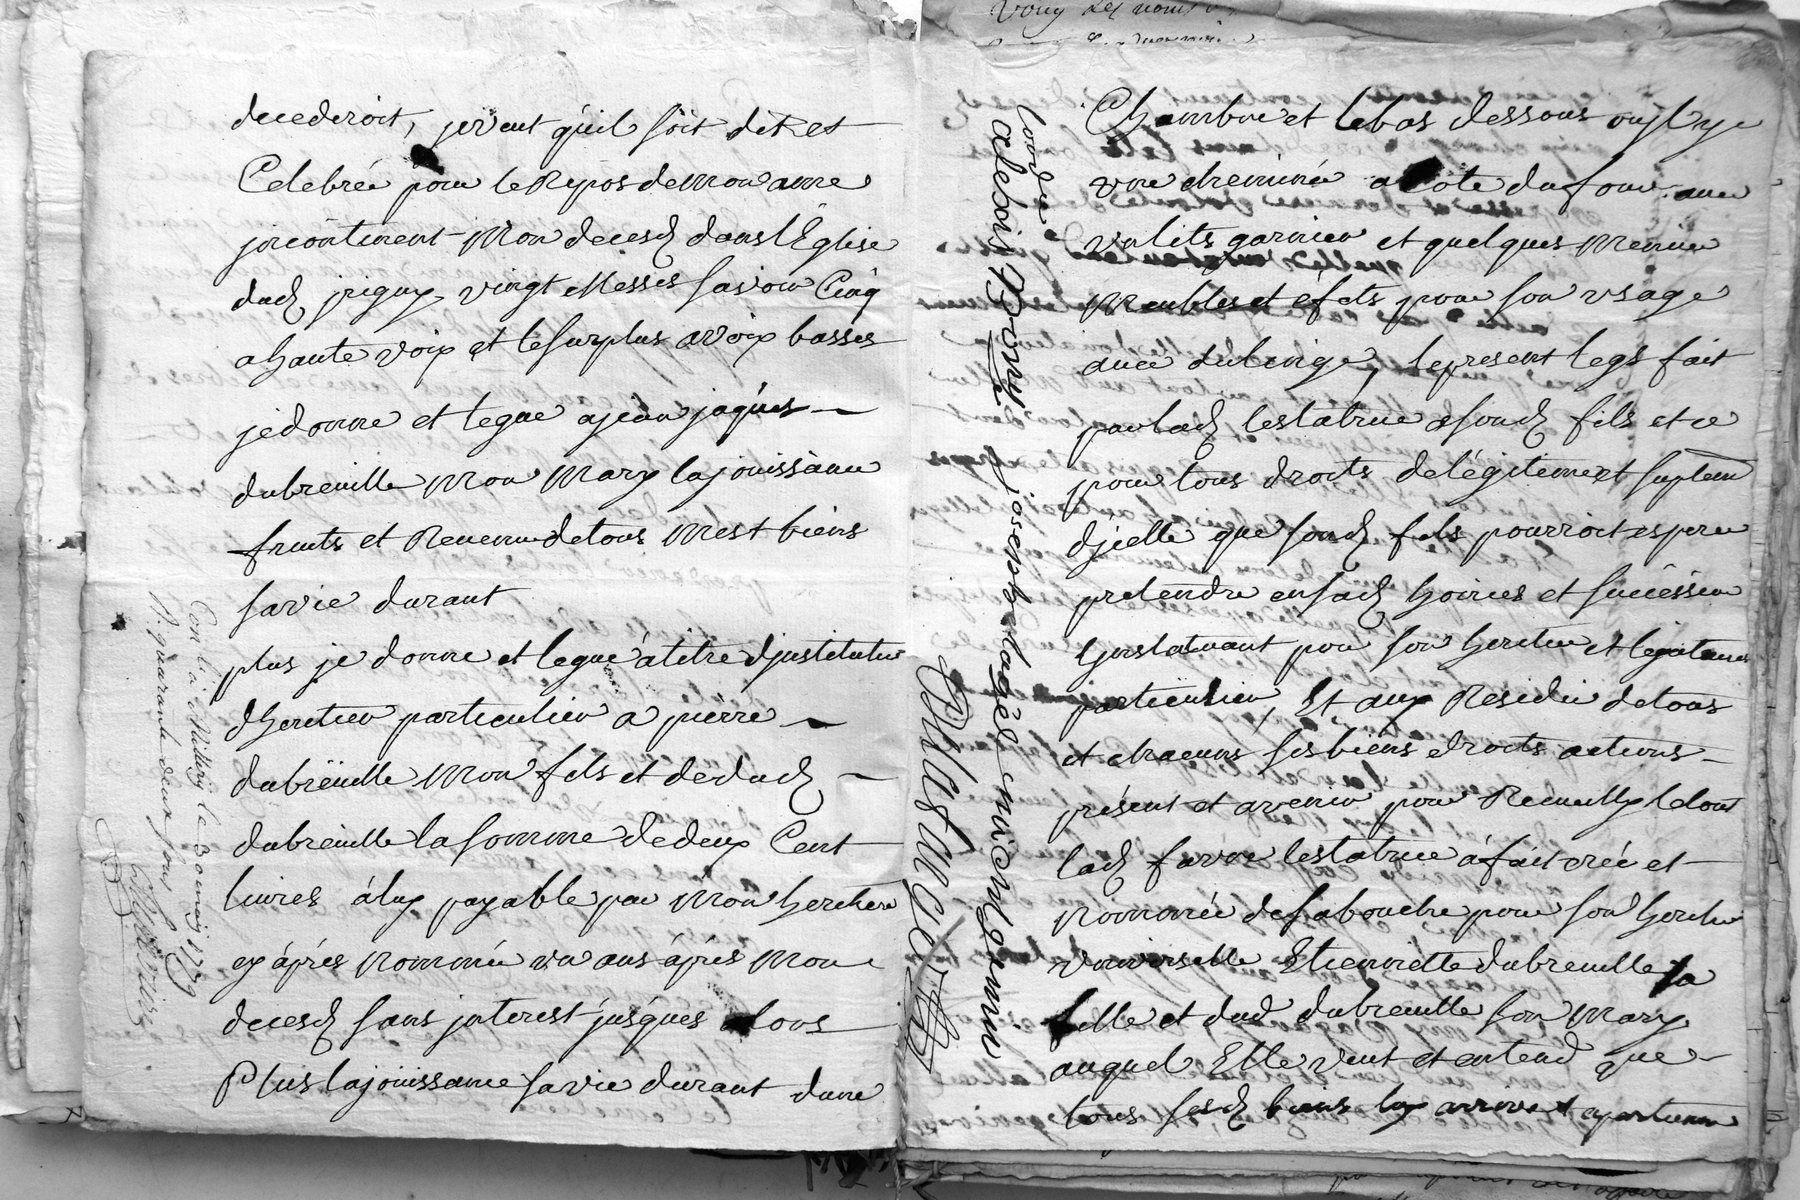 decederoit, je veut quil soit dit et
Celebrée pour le Repos de mon ame
jncontinent mon decesd dans lEglise
dud jrigny vingt Messes savoir Cinq
a haute voix et le surplus a voix basses
je donne et legue a jean jaques
dubreuille mon mary la jouissance
fruits et Revenu de tous mest biens
sa vie durant
plus je donne et legue á titre djnstitution
dheritier particulier a pierre
dubreüille mon fils et dedud
dubreuille la somme de deux Cent
livres á luy payable par mon heritiere
cy áprés nommée un ans áprés mon
decesd sans jnterest jusques alors
Plus la jouissance sa vie durant dune
Conlé á Millery le 30 mai 1759
R. quarante deux sous
Chambre et le bas dessous ou jl y a
une cheminée a côte du four avec
un lits garnier et quelques menue
meubles et éfets pour son usage
avec du linge, le present legs fait
par lad testatrice a sond fils et ce
pour tous droits de légitime et suplem
djcelle que sond fils pourroit esperer
pretendre en sad hoiries et succéssion
linstatuant pour son heritier et légataire
particulier, Et aux Residu de tous
et chacuns ses biens droits actions
présent et avenir pour Recueilly le tout
lad favre testatrice á fait crée et
nommée de sa bouche pour son heritier
universelle Etiennette dubreuille sa
fille et dud dubreuille son mary
auquel Elle veut et entend que
tous sesd biens luy arrive et apartienne